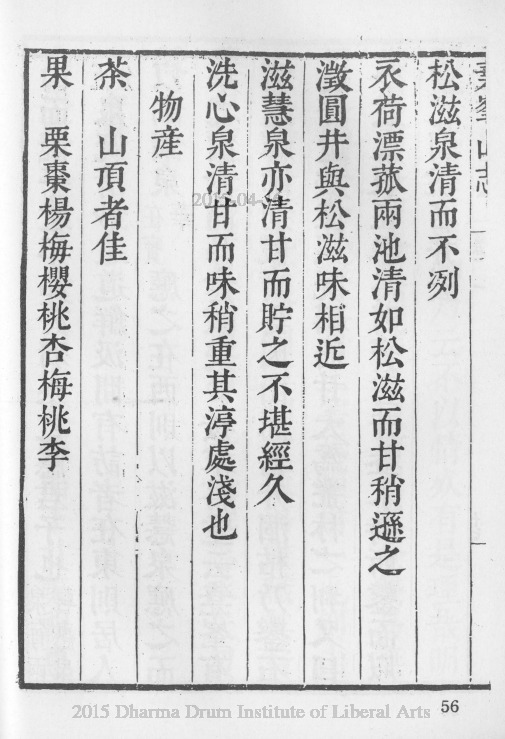 松滋泉清而不冽
衣荷漂菰兩池清如松滋而甘稍遜之
澂圓井與松滋味相近
滋慧泉亦清甘而貯之不堪經久
洗心泉清甘而味稍重其渟處淺也
物産
茶　山頂者佳
果　栗棗楊梅櫻桃杏梅桃李
56
2015 Dharma Drum Institute of Liberal Arts